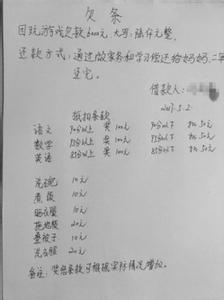 欠条
因玩游戏欠款6000元,大写:陆仟元整。
还款方式:通过做家务和学习偿还给妈妈,二年
还完。
借款人:
2017.5.2.
抵扣条款
语文 90分以上 奖100元 90分以下 扣50元
数学 95分以上 奖100元 95分以下 扣50元
英语 85分以上 奖100元 85分以下 扣50元
洗碗 10元
煮饭 10元
晒衣服 10元
拖地 20元
叠被子 10元
洗衣服 20元
备注:奖惩条款可根据实际情况增加。